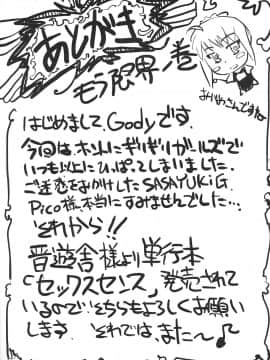 あとがき
もう限界ノ巻
はじめまして、Godyです。
今回はホントにぎりぎりガールズで
いつも以上にひっぱってしまいました。
ご迷惑をおかけしたSASAYUKiG
Pico様、本当にすみませんでした…
それから!!
晋遊舎様より単行本
「セックスセンス」発売されて
いるので、そちらもよろしくお願い
します。それでは、また〜♪